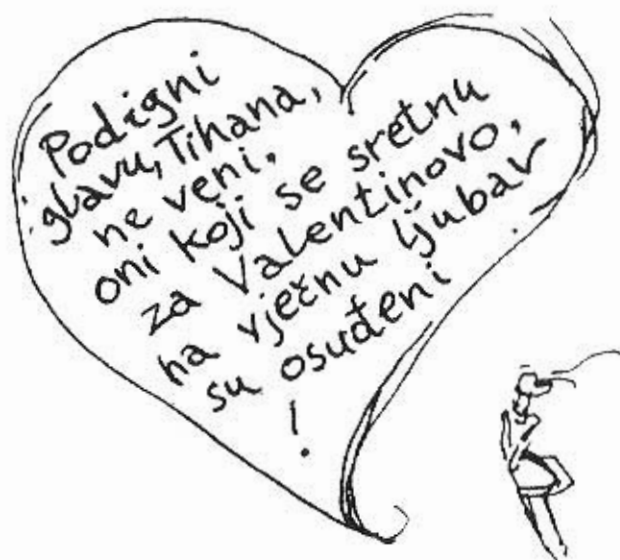 Podigni
glavu, Tihana,
ne veni,
oni koji se sretnu
za Valentinovo,
na vječnu ljubav
su osuđeni
!